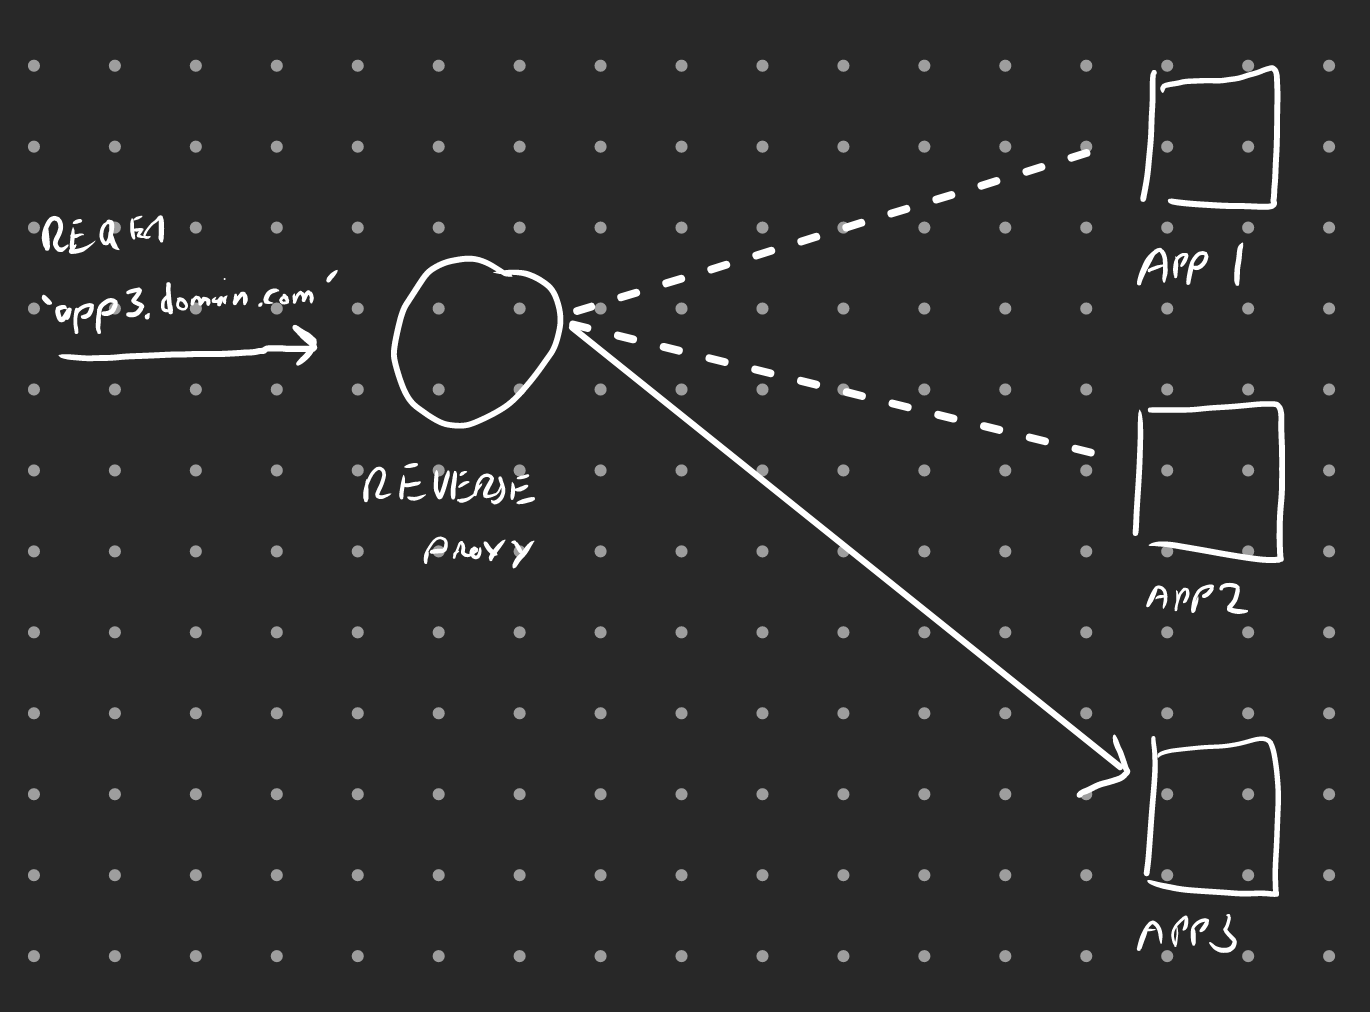 'app3.domain.com'
REVERSE
PROXY
APP 1
APP2
APP3